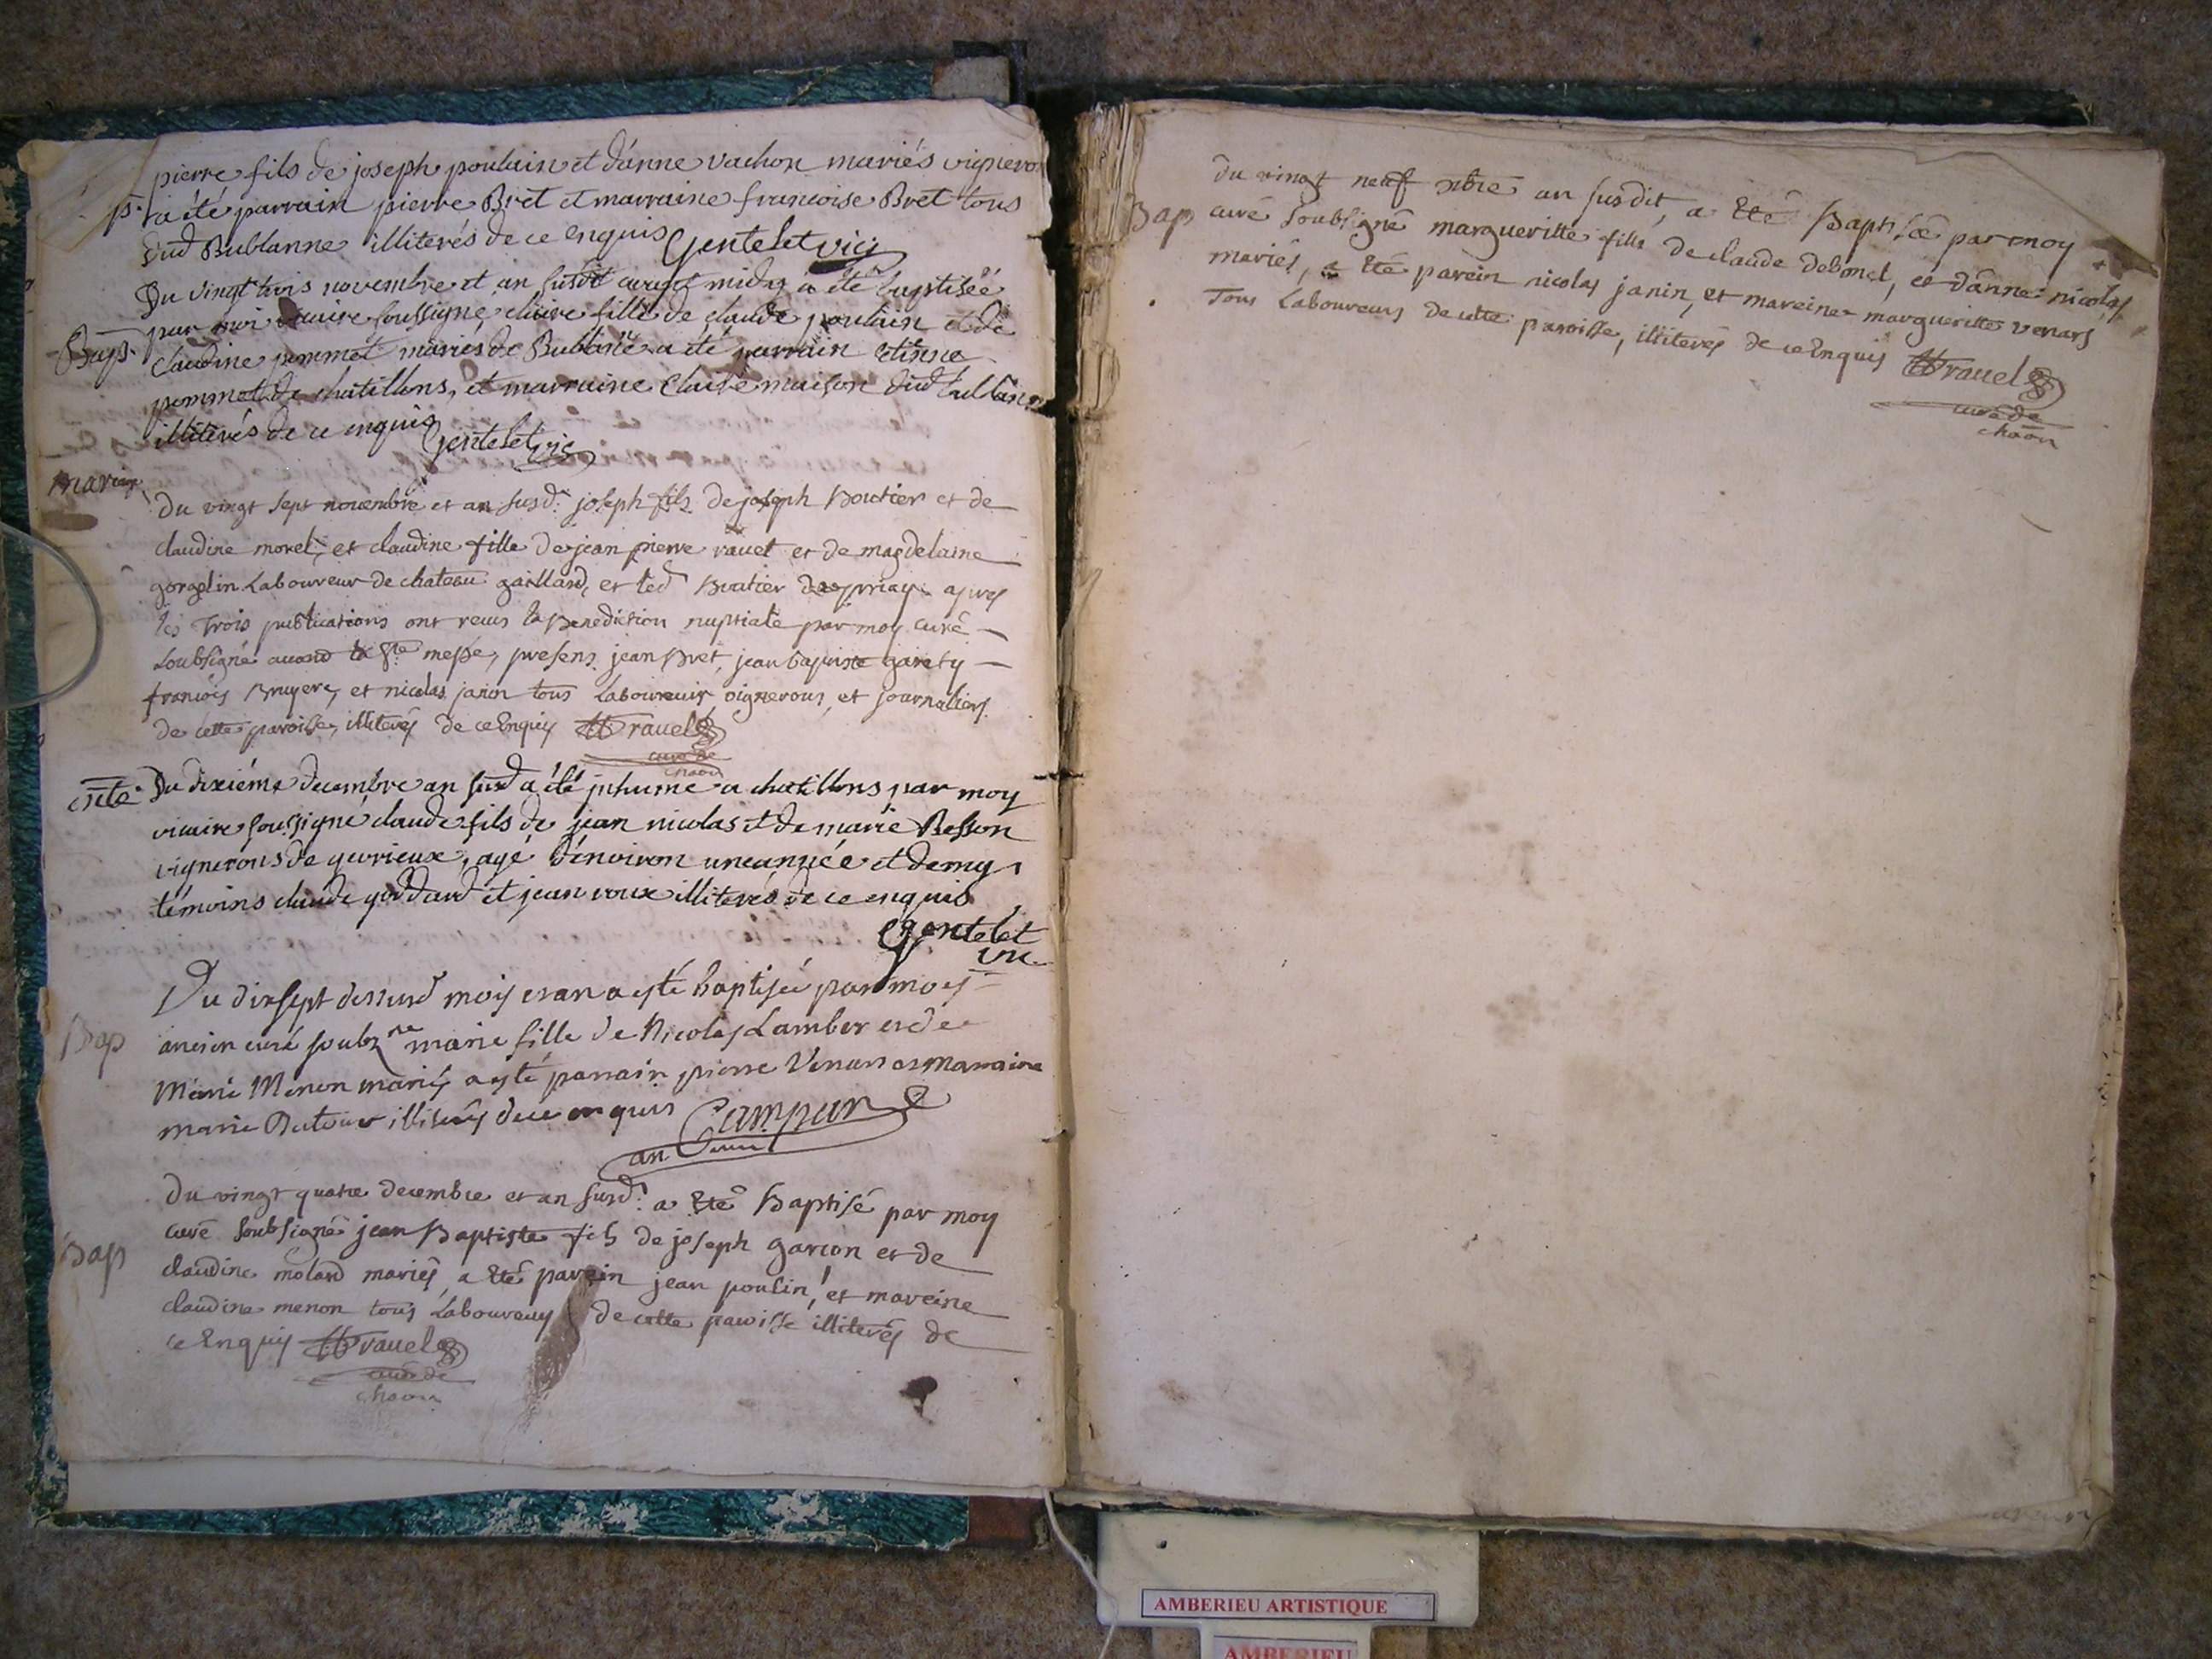 pierre fils de joseph poulain et d'anne vachon mariés vigneron
p. a été parrain pierre Bret et marraine francoise Bret tous
dud Bublanne illiterés de ce enquis Gentelet vic
Du vingt trois novembre et an susdit a été baptisée
par moi vicaire soussigné claire fille de claude poulain et de
Bap. claudine pommet mariés de Bublane a été parrain etienne
pommet de chatillons, et marraine claire maison dud bublanne
illiterés de ce enquis Gentelet vic
mariage
Du vingt sept novembre et an susd. joseph fils de joseph Boutier et de
claudine morel, et claudine fille de jean pierre ravet et de magdelaine
Laboureur de chateau gaillard, et led Boutier apres
les Trois publications ont receus la Benediction nuptiale par moy curé
soubsigné avand la Ste messe, presens jean Bret, jean baptiste
francois Bruyere, et nicolas janin tous Laboureurs, vignerons, et journaliers
de cette paroisse, illiterés de ce Enquis ravel
curé de
chaon
Du dixiéme decembre an susd a été inhumé a chatillons par moy
vicaire soussigné claude fils de jean nicolas et de marie Besson
vignerons de gevrieux, agé d'environ une année et demy
témoins claude goddard et jean roux illiterés de ce enquis
Gentelet
vic
Du dixsept dessusd mois et an a esté baptisée par moy
Bap ancien curé soubz.né marie fille de Nicolas Lamber et de
Marie Menon mariés a esté parrain pierre Venars et Marraine
marie illiterés de ce enquis Campan
an curé
Du vingt quatre decembre et an susd. a Eté Baptisé par moy
curé soubsigné jean Baptiste fils de joseph garcon et de
Bap claudine molard mariés, a Eté parein jean poulin, et mareine
claudine menon tous Laboureurs de cette paroisse illiterés de
ce Enquis ravel
curé de
chaon
Du vingt neuf xbre an susdit, a Eté Baptisée par moy
Bap curé soubsigné margueritte fille de claude debonel, et d'anne nicolas
mariés, a Eté parein nicolas janin, et mareine margueritte venars
Tous Laboureurs de cette paroisse, illiterés de ce Enquis ravel
curé de
chaon
AMBERIEU ARTISTIQUE
AMBERIEU